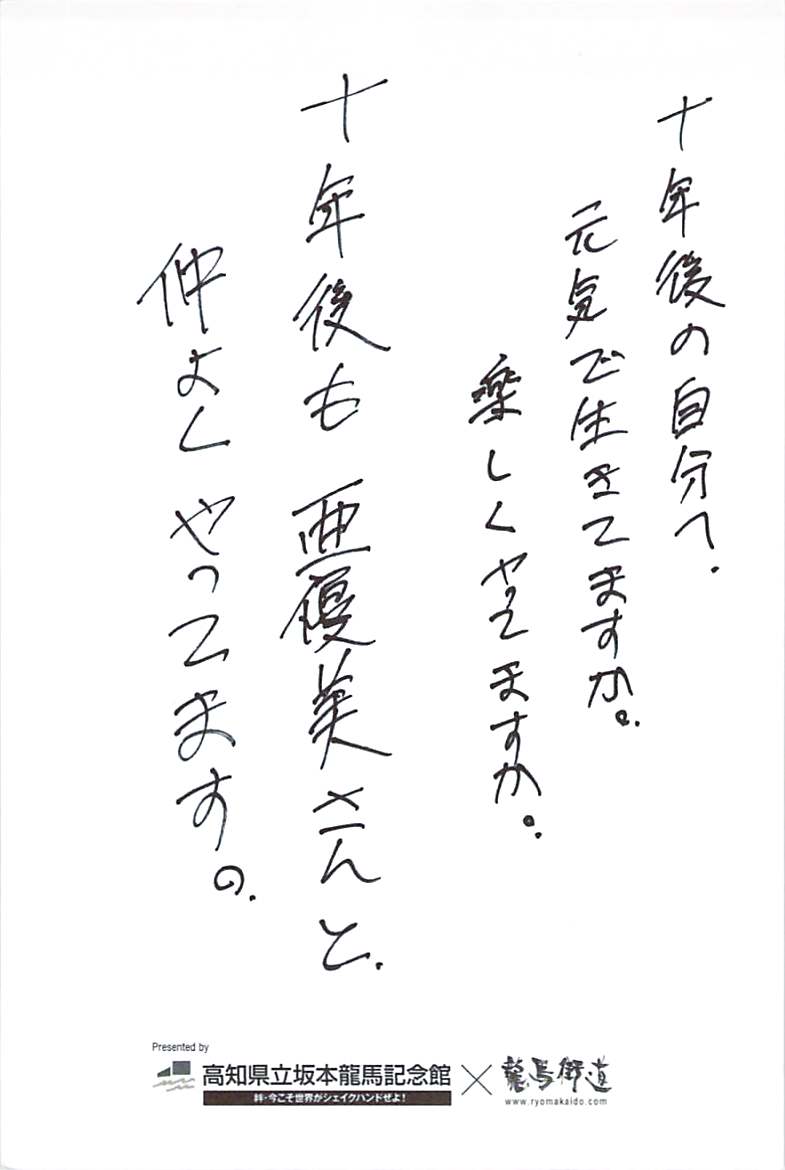 十年後の自分へ.
元気で生きてますか。.
楽しくやってますか。.
十年後も亜優美さんと.
仲よくやってますの.
Presented by
高知県立坂本龍馬記念館
絆・今こそ世界がシェイクハンドぜよ!
×
龍馬街道
www.ryomakaido.com